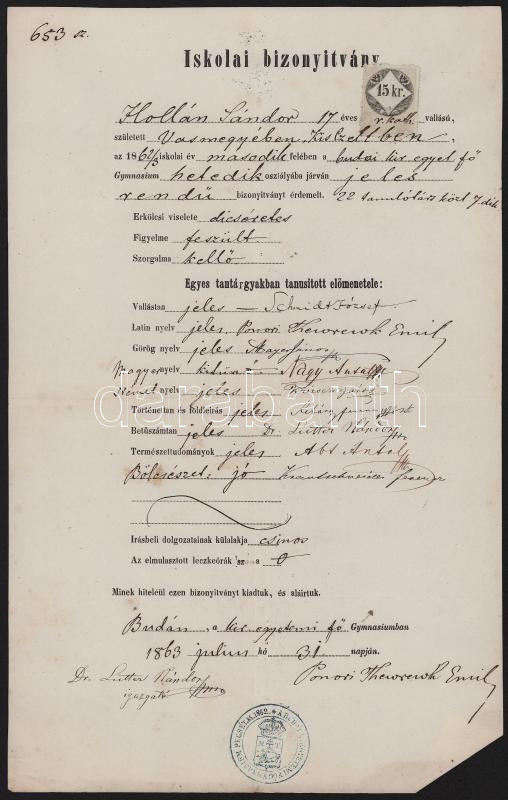 653 sz.
Iskolai bizonyitvány
15 kr.
Hollán Sándor 17 éves r. kath. vallású,
született Vasmegyében, Kis Czellben
az 1862/3 iskolai év masodik felében a budai kir. egyet. fő
Gymnasium hetedik osztályába járván jeles
rendű bizonyitványt érdemelt. 22 tanulótárs közt 7-dik
Erkölcsi viselete dicséretes
Figyelme feszült
Szorgalma kellő
Egyes tantárgyakban tanusitott előmenetele:
Vallástan jeles — Schmidt József
Latin nyelv jeles Ponori Thewrewk Emil
Görög nyelv jeles Mayer János
Magyar nyelv kitünő Nagy Antal
Német nyelv jeles
Történettan és földleirás jeles
Betűszámtan jeles Dr. Lutter Nándor
Természettudományok jeles Abt Antal
Bölcsészet: jó Ferencz
darabanth
Irásbeli dolgozatainak külalakja csinos
Az elmulasztott leczkeórák száma 0
Minek hiteléül ezen bizonyitványt kiadtuk, és aláirtuk.
Budán, a kir. egyetemi fő Gymnasiumban
1863 julius hó 31 napján.
Dr. Lutter Nándor
igazgató
Ponori Thewrewk Emil
1862.